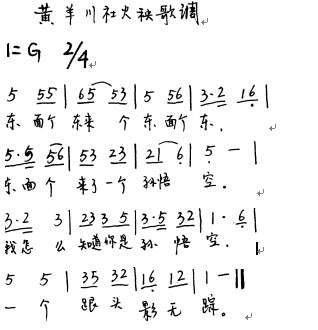 黄羊川社火秧歌调
1=G 2/4
5 55 | 65 53 | 5 56 | 3·2 16 |
东 面个 东来 个 东 面个 东,
5·5 56 | 53 23 | 21 6 | 5 - |
东 面 个 来了 一个 孙悟 空。
3·2 3 | 23 3 5 | 3·5 32 | 1· 6 |
我怎 么 知道你是 孙 悟 空。
5 5 | 35 32 | 16 12 | 1 - ‖
一 个 跟 头 影 无 踪。